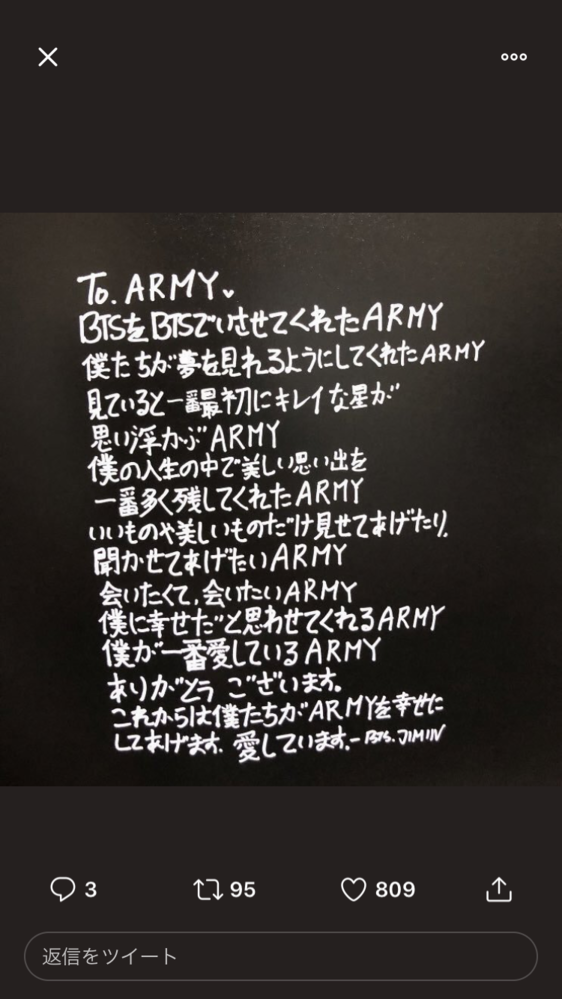 To. ARMY♥
BTSをBTSでいさせてくれたARMY
僕たちが夢を見れるようにしてくれたARMY
見ていると一番最初にキレイな星が
思い浮かぶARMY
僕の人生の中で美しい思い出を
一番多く残してくれたARMY
いいものや美しいものだけ見せてあげたり、
聞かせてあげたいARMY
会いたくて、会いたいARMY
僕に幸せだと思わせてくれるARMY
僕が一番愛しているARMY
ありがとう ございます。
これからは僕たちがARMYを幸せに
してあげます。愛しています。- BTS. JIMIN
3 95 809
返信をツイート